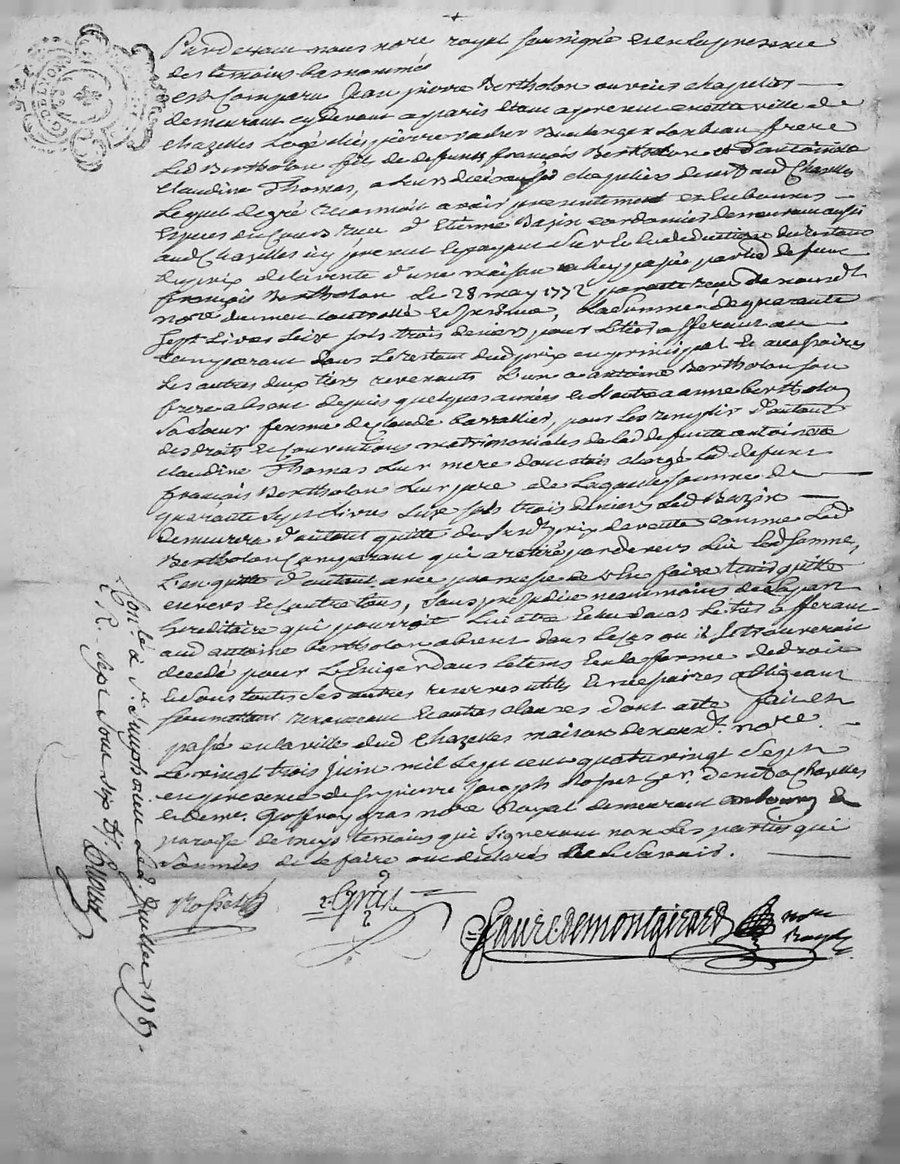 Pardevant nous no.re royal soussigné et en la presence
des temoins bas nommés
est Comparu Jean pierre Bertholon ouvrier chapelier
demeurant cy devant a paris etant a present en cette ville de
Chazelles logé chés pierre Boulanger son beau frere
Led Bertholon fils de defunts françois Bertholon et d'antoinette
Claudine Thomas, a leurs deux chapelier aud Chazelles
Lequel de gré reconnoit avoir presentement et en bonnes
Especes du Cours reçu d'Etienne Bazin cordonnier demeurant aussi
aud Chazelles icy present Et payant Sur Et en deduction du restant
du prix de la vente d'une maison a luy passée par led defunt
françois Bertholon Le 28 may 1772 par acte reçu de nousd.t
no.re duement controllé et insinué, La Somme de quarante
Sept Livres Seize sols trois deniers pour le tiers afferant au
Comparant dans Le restant dud prix en principal Et accessoires
Les autres deux tiers revenants L'un a antoine Bertholon son
frere absent depuis quelques années et L'autre a anne bertholon
Sa Sœur femme de Claude barrallier, pour les remplir d'autant
des droits et Conventions matrimoniales de lad defunte antoinette
claudine Thomas Leur mere dont etoit chargé Led defunt
françois Bertholon Leur pere de Laquelle Somme de
quarante Sept Livres Seize sols trois deniers Led Bazin
demeurera d'autant quitte du Susd prix de vente comme Led
Bertholon Comparant qui a retiré par devers Lui lad Somme,
L'en quitte d'autant avec promesse de L'en faire tenir quitte
envers et Contre tous, Sans prejudice neanmoins de la part
hereditaire qui pourroit Lui etre Echue dans Le tiers afferant
aud antoine bertholon absent dans Le cas ou il Se trouveroit
decedé pour L'Exiger dans Le tems et en la forme de droit
Et Sous toutes Ses autres reserves utiles et necessaires obligeant
Soumettant renonceant et autres clauses dont acte fait et
passé en la ville dud Chazelles maison de nousd.t no.re
Le vingt trois juin mil Sept cent quatrevingt Sept
en presence de S.r pierre Joseph Rosset de aud Chazelles
et de me. Geoffroy Gras no.re Royal demeurant au bourg et
paroisse de temoins qui Signeront non Les parties qui
Sommées de Le faire ont declarés ne Le Savoir.
Rosset
Gras
Faure de montgirard no.re Royal
Con.lé à S.t Simphorien Le d.x juillet 1787.
R. Sept Sous Six D.